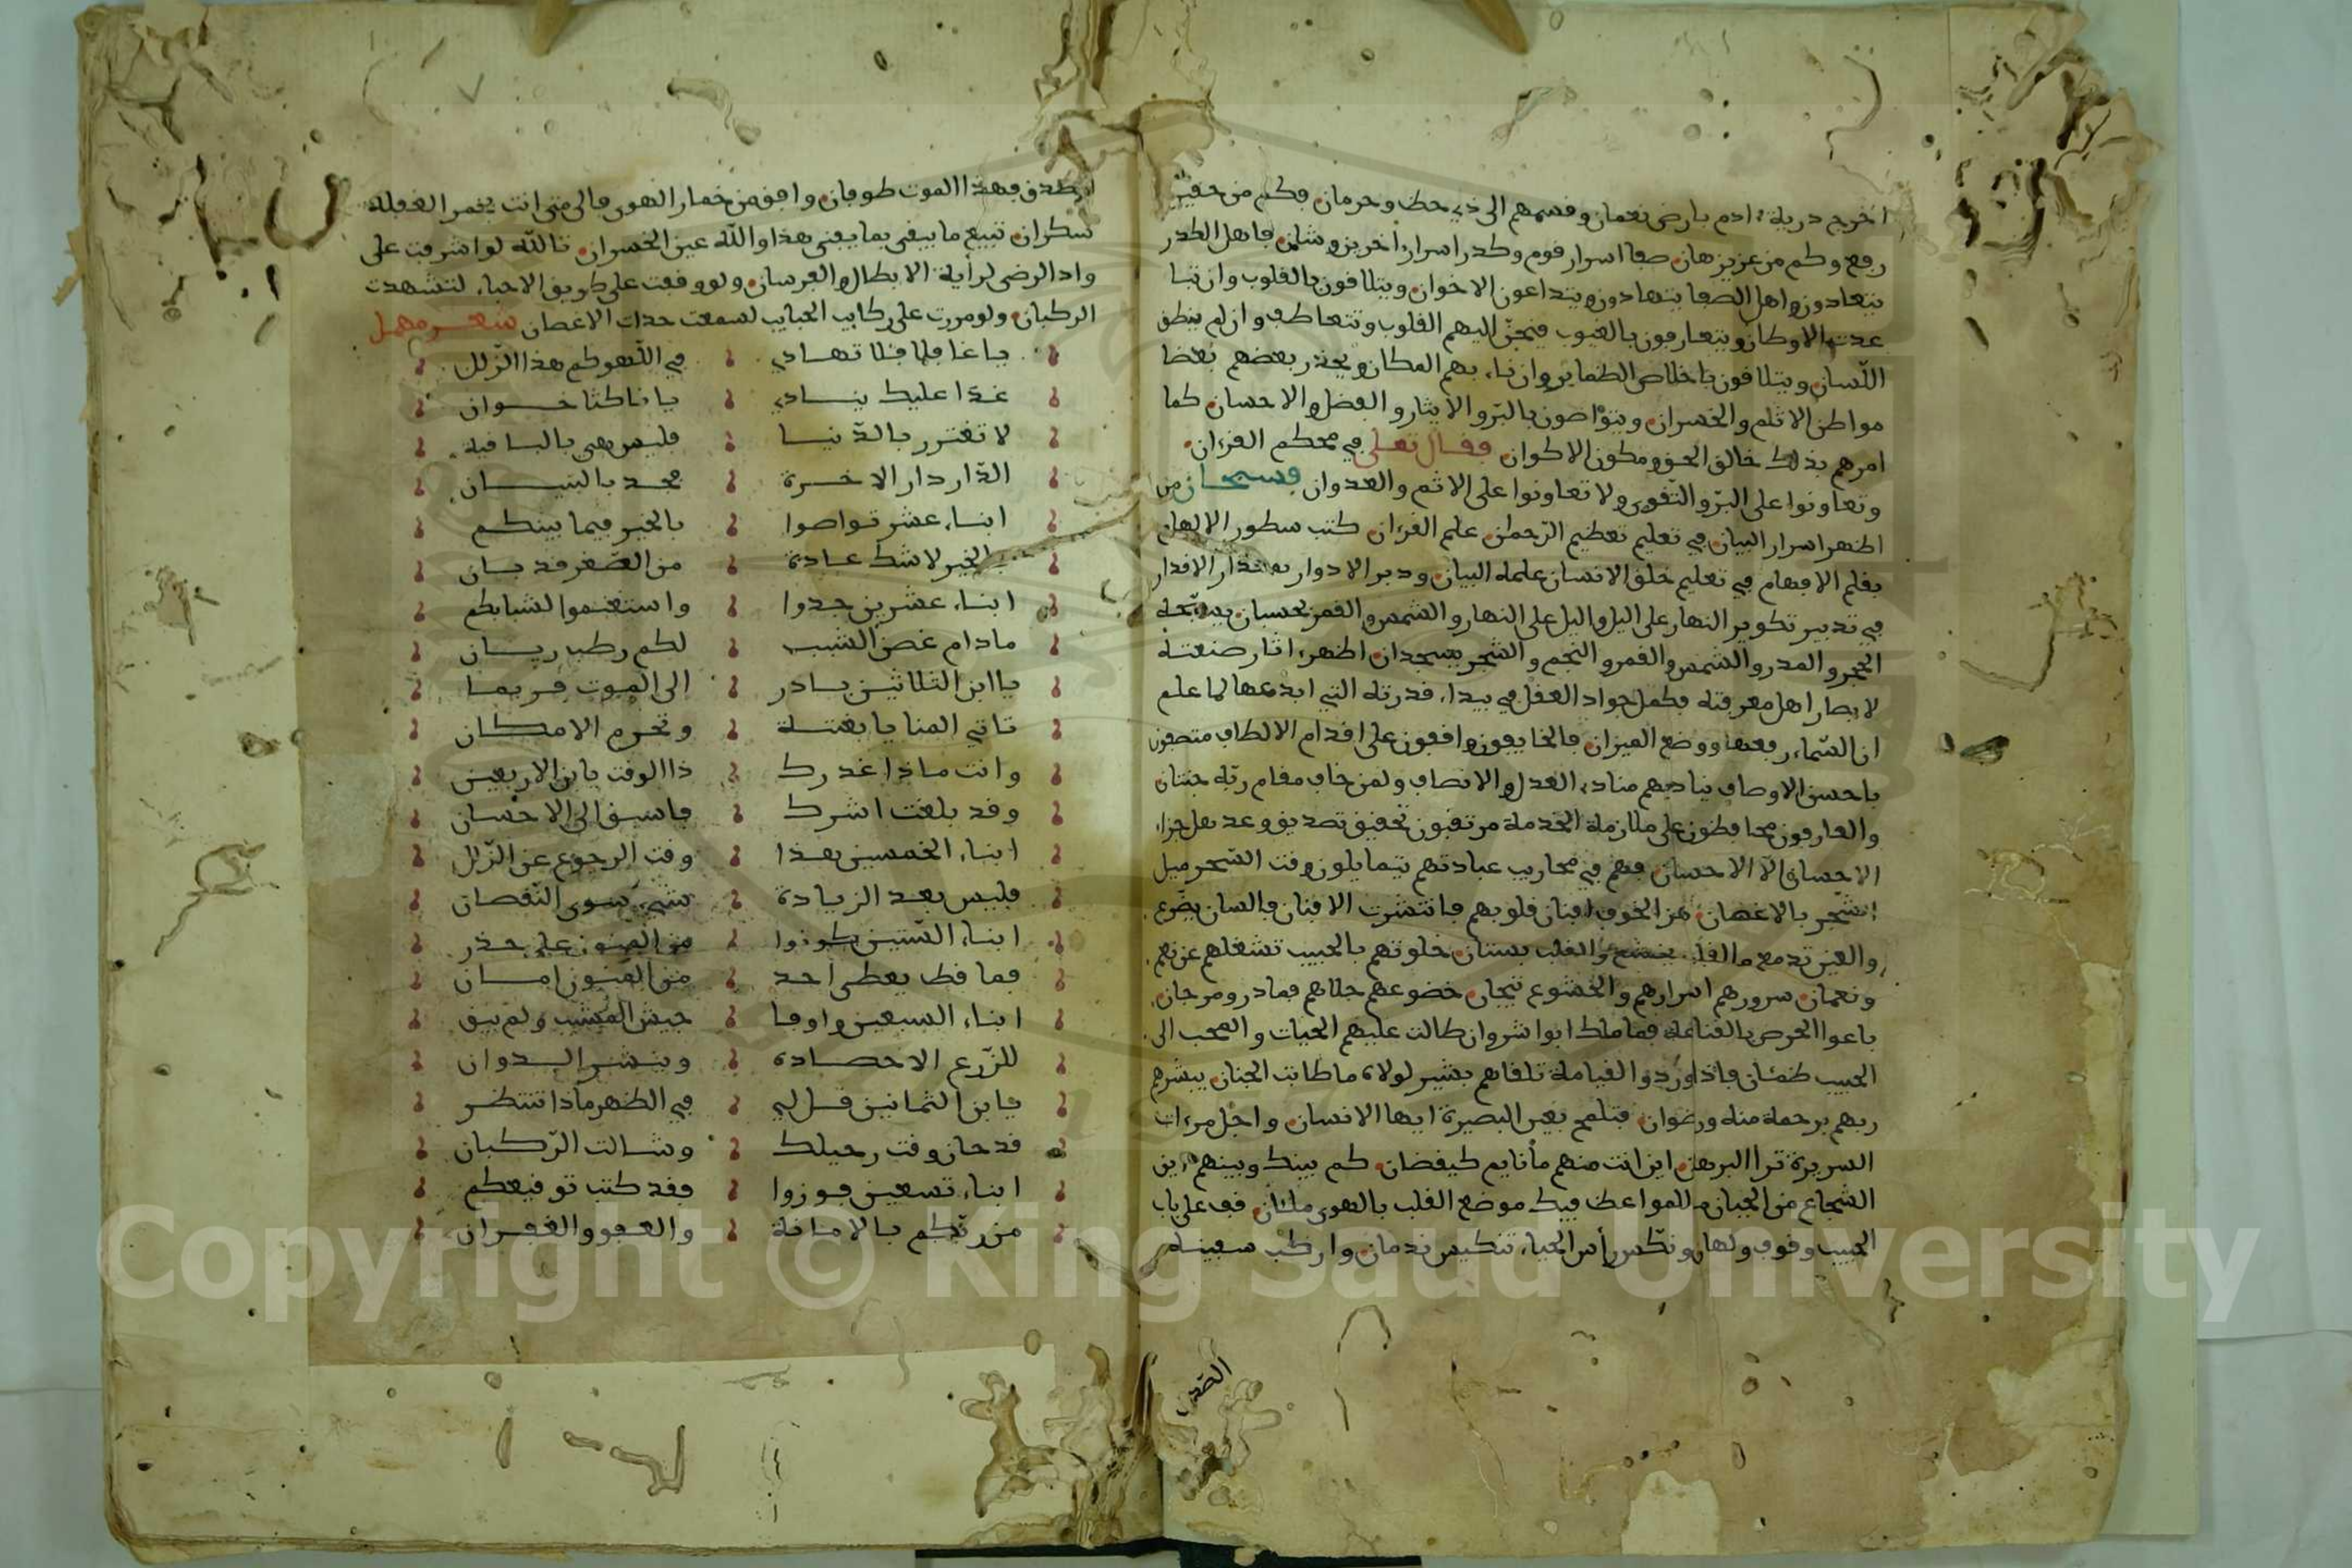 اخرج درية ادم بارض نعمان وقسمهم الى ذي حظ وحرمان فكم من حقير
رفع وكم من عزيز هان صفا اسرار قوم وكدر اسرار أخرين وشان فاهل الكدر
يتعادون واهل الصفا يتهادون ويتداعون الاخوان ويتلافون بالقلوب وان تبا
عدت الاوطان ويتعارفون بالغيوب فتحنّ اليهم القلوب وتتعاطف وان لم ينطق
اللّسان ويتلافون باخلاص الضماير وان ناء بهم المكان ويحذر بعضهم بعضا
مواطن الاثم والخسران ويتواصون بالبرّ والايثار والفضل والاحسان كما
امرهم بذلك خالق الخلق ومكون الاكوان فقال تعلى في محكم القرءان
وتعاونوا على البرّ والتّقوى ولا تعاونوا على الاثم والعدوان فسبحان من
اظهر اسرار البيان في تعليم تعظيم الرّحمان علم القرءان كتب سطور الالهام
بقلم الافهام في تعليم خلق الانسان علمه البيان ودبر الادوار بمقدار الاقدار
في تدبير تكوير النهار على اليل واليل على النهار والشمس والقمر بحسبان يسبّحه
الحجر والمدر والشمس والقمر والنجم والشجر يسجدان اظهر ءاثار صنعته
لابصار اهل معرفته فكمل جواد العقل في بيداء قدرته التي ابدعها لما علم
ان السّماء رفعها ووضع الميزان فالخايفون واقفون على اقدام الالطاف متصفون
باحسن الاوصاف يناديهم مناد العدل والانصاف ولمن خاف مقام ربّه جنتان
والعارفون محافظون على ملازمة الخدمة مرتقبون تحقيق تصديق وعد هل جزاء
الاحسان الّا الاحسان فهم في محاريب عبادتهم يتمايلون وقت السّحر ميل
الشّجر بالاغصان هز الخوف افنان قلوبهم فانتشرت الافنان فالسان يضّرع
والعين تدمع والقلب يخشع والقلب بستان خلوتهم بالحبيب تشغلهم عن نعم
ونعمان سرورهم اسرارهم والخشوع تيجان خضوعهم حلاهم فما در ومرجان
باعوا الحرص بالقناعة فما ملك انوا شروان طالت عليهم الحيات والمحب الى
الحبيب ظمئان فاذا وردوا القيامة تلقاهم بشير لولاه ما طابت الجنان يبشرهم
ربهم برحمة منه ورضوان فتلمح بعين البصيرة ايها الانسان واجل مرءات
السريرة ترا البرهان اين انت منهم ما نايم كيقضان كم بينك وبينهم اين
الشجاع من الجبان ما للمواعظ فيك موضع القلب بالهوى ملئان قف على باب
الحبيب وقوف ولهان ونكّس رأس الحياء تنكيس ندمان واركب سفينة
الصدق
الصدق فهذا الموت طوفان وافق من خمار الهوى فالى متى انت بخمر الغفلة
سكران تبيع ما يبقى بما يفنى هذا والله عين الخسران تالله لو اشرفت على
واد الرضى لرأية الابطال والفرسان ولو وقفت على طريق الاحباء لتشهدت
الركبان ولو مررت على ركايب الحبايب لسمعت حداة الاغصان شعر مهمل
يا غافلا فلا تهادي في اللّهو كم هذا الزّلل
غدّا عليك ينادي يا ناكثا خوان
لا تغترر بالدّنيا فليس هي بالباقية
الدّار دار الاخرة محمد بالبيان
ابناء عشر تواصوا بالخير فيما بينكم
الخير لا شك عادة من الصّغر قد بان
ابناء عشرين جدوا واستغنموا لشبابكم
مادام غصن الشبب لكم رطب ريان
يا ابن الثلاثين بادر الى الموت فربما
تاتي المنايا بغتة وتحرم الامكان
وانت ماذا غدرك ذا الوقت يابن الاربعين
وقد بلغت اشرك فاسبق الى الاحسان
ابناء الخمسين هذا وقت الرجوع عن الزّلل
فليس بعد الزيادة شيء سوى النّقصان
ابناء السّتين كونوا من المنون على حذر
فما قط يعطى احد من المنون امان
ابناء السبعين وافا جيش المشيب ولم يبق
للزّرع الاحصادة وينشر الدوان
يابن الثمانين قل لي في الظهر ماذا تنتظر
قد حان وقت رحيلك وشالت الرّكبان
ابناء تسعين فوزوا فقد كتب توقيعكم
من ربّكم بالامانة والعفو والغفران
Copyright © King Saud University